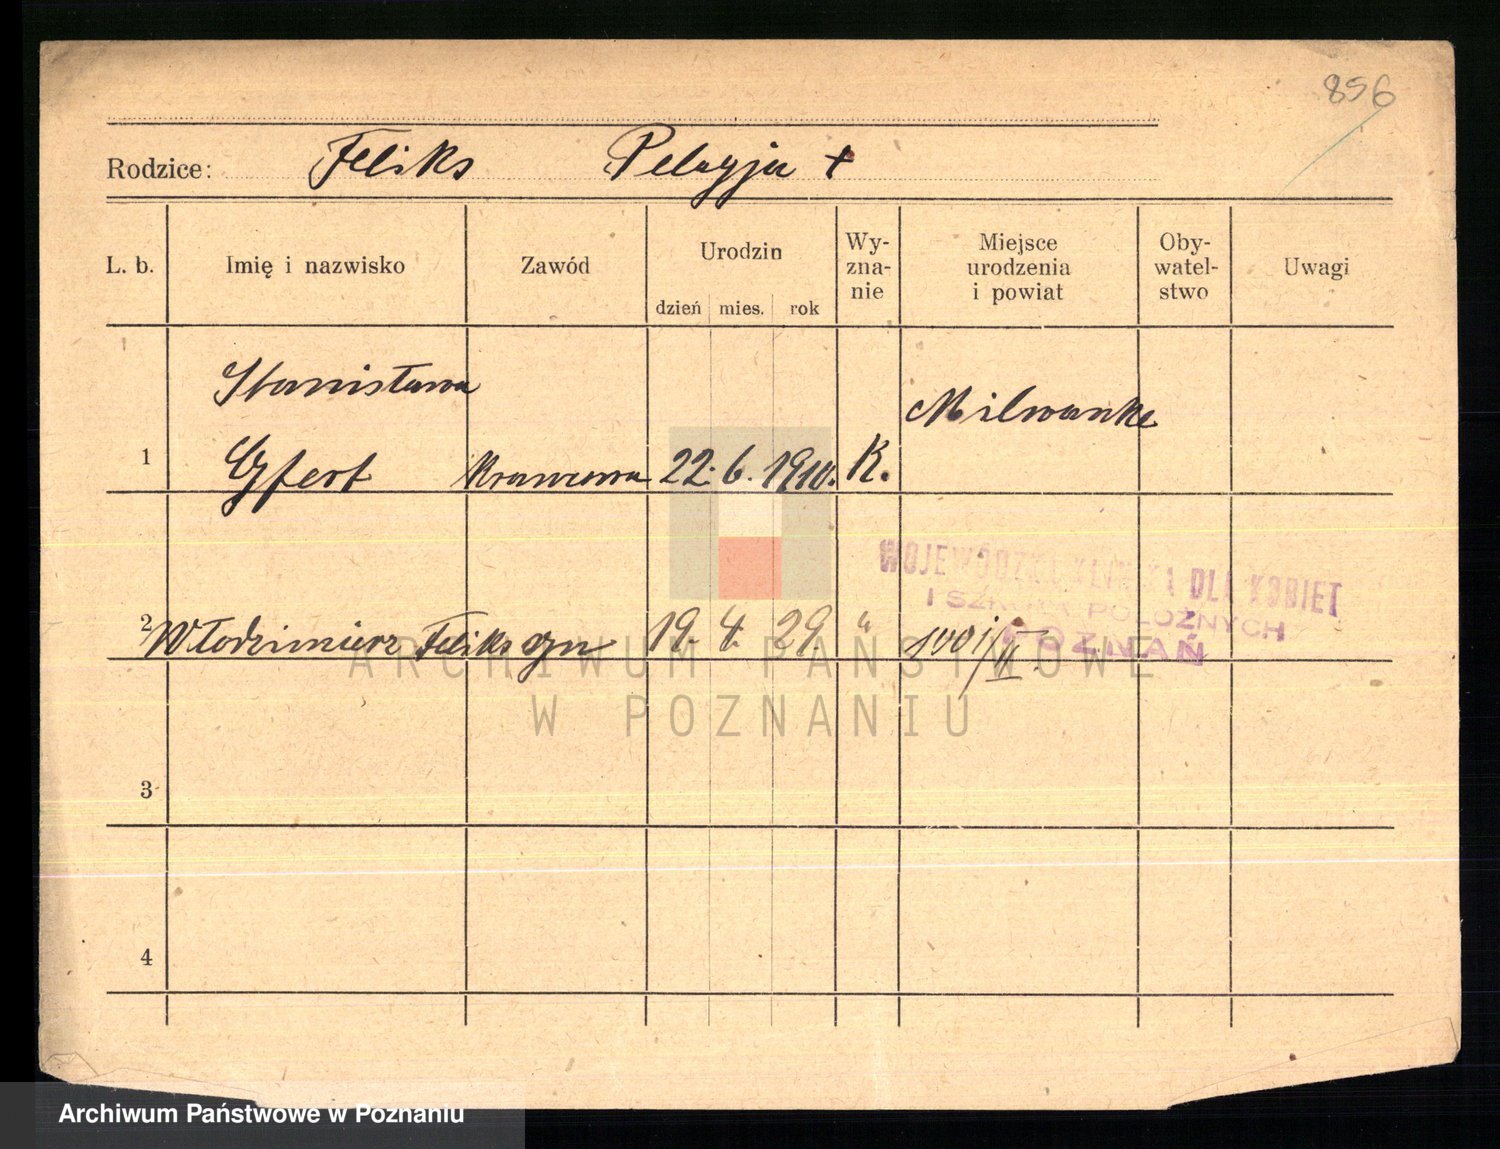 856
Rodzice: Feliks Pelagja +
L. b. Imię i nazwisko Zawód Urodzin Wy-zna-nie Miejsce urodzenia i powiat Oby-watel-stwo Uwagi
dzień mies. rok
Stanisława Milwauke
1 Gfert krawcowa 22. 6. 1910. K.
WOJEWÓDZKA KLINIKA DLA KOBIET
I SZKOŁA POŁOŻNYCH
POZNAŃ
2 Włodzimierz Feliks syn 19. 4. 29. "
ARCHIWUM PAŃSTWOWE
W POZNANIU
3
4
Archiwum Państwowe w Poznaniu